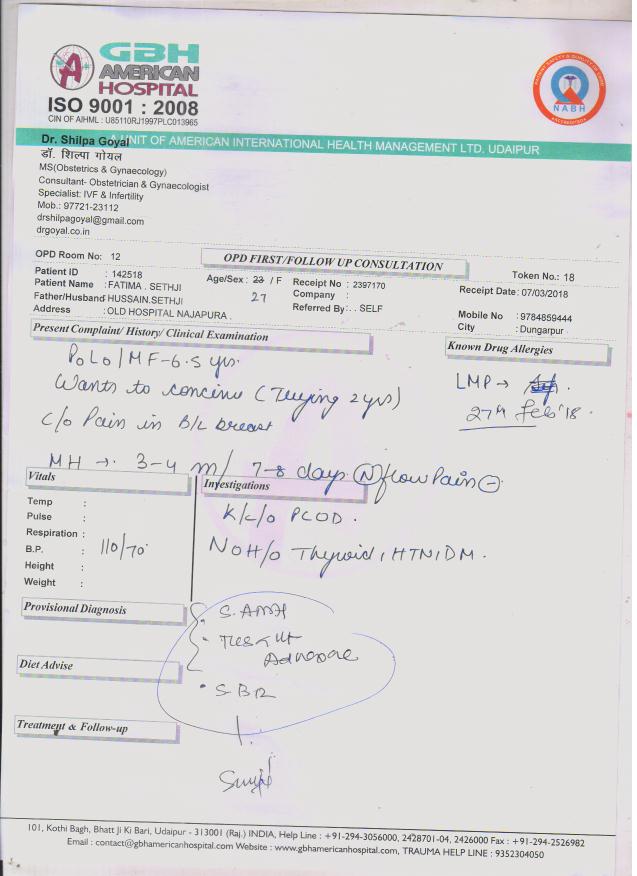 GBH
AMERICAN
HOSPITAL
ISO 9001 : 2008
CIN OF AIHML : U85110RJ1997PLC013965
NABH
A UNIT OF AMERICAN INTERNATIONAL HEALTH MANAGEMENT LTD. UDAIPUR
Dr. Shilpa Goyal
डॉ. शिल्पा गोयल
MS(Obstetrics & Gynaecology)
Consultant- Obstetrician & Gynaecologist
Specialist: IVF & Infertility
Mob.: 97721-23112
drshilpagoyal@gmail.com
drgoyal.co.in
OPD Room No: 12
OPD FIRST/FOLLOW UP CONSULTATION
Token No.: 18
Patient ID : 142518
Age/Sex : 23 / F
27
Receipt No : 2397170
Receipt Date: 07/03/2018
Patient Name : FATIMA . SETHJI
Company :
Father/Husband HUSSAIN.SETHJI
Referred By: . . SELF
Mobile No : 9784859444
Address : OLD HOSPITAL NAJAPURA .
City : Dungarpur
Present Complaint/ History/ Clinical Examination
Known Drug Allergies
P0L0/MF-6.5 yrs.
LMP →
Wants to (Trying 2yrs)
27th Feb'18.
C/o Pain in B/L breast
MH → 3-4 m/ 7-8 days N flow Pain -
Vitals
Investigations
Temp :
K/C/O PCOD.
Pulse :
Respiration :
B.P. : 110/70
No H/o Thyroid, HTN, DM.
Height :
Weight :
Provisional Diagnosis
S. AMH
Diet Advise
Treatment & Follow-up
101, Kothi Bagh, Bhatt Ji Ki Bari, Udaipur - 313001 (Raj.) INDIA, Help Line : +91-294-3056000, 2428701-04, 2426000 Fax : +91-294-2526982
Email : contact@gbhamericanhospital.com Website : www.gbhamericanhospital.com, TRAUMA HELP LINE : 9352304050